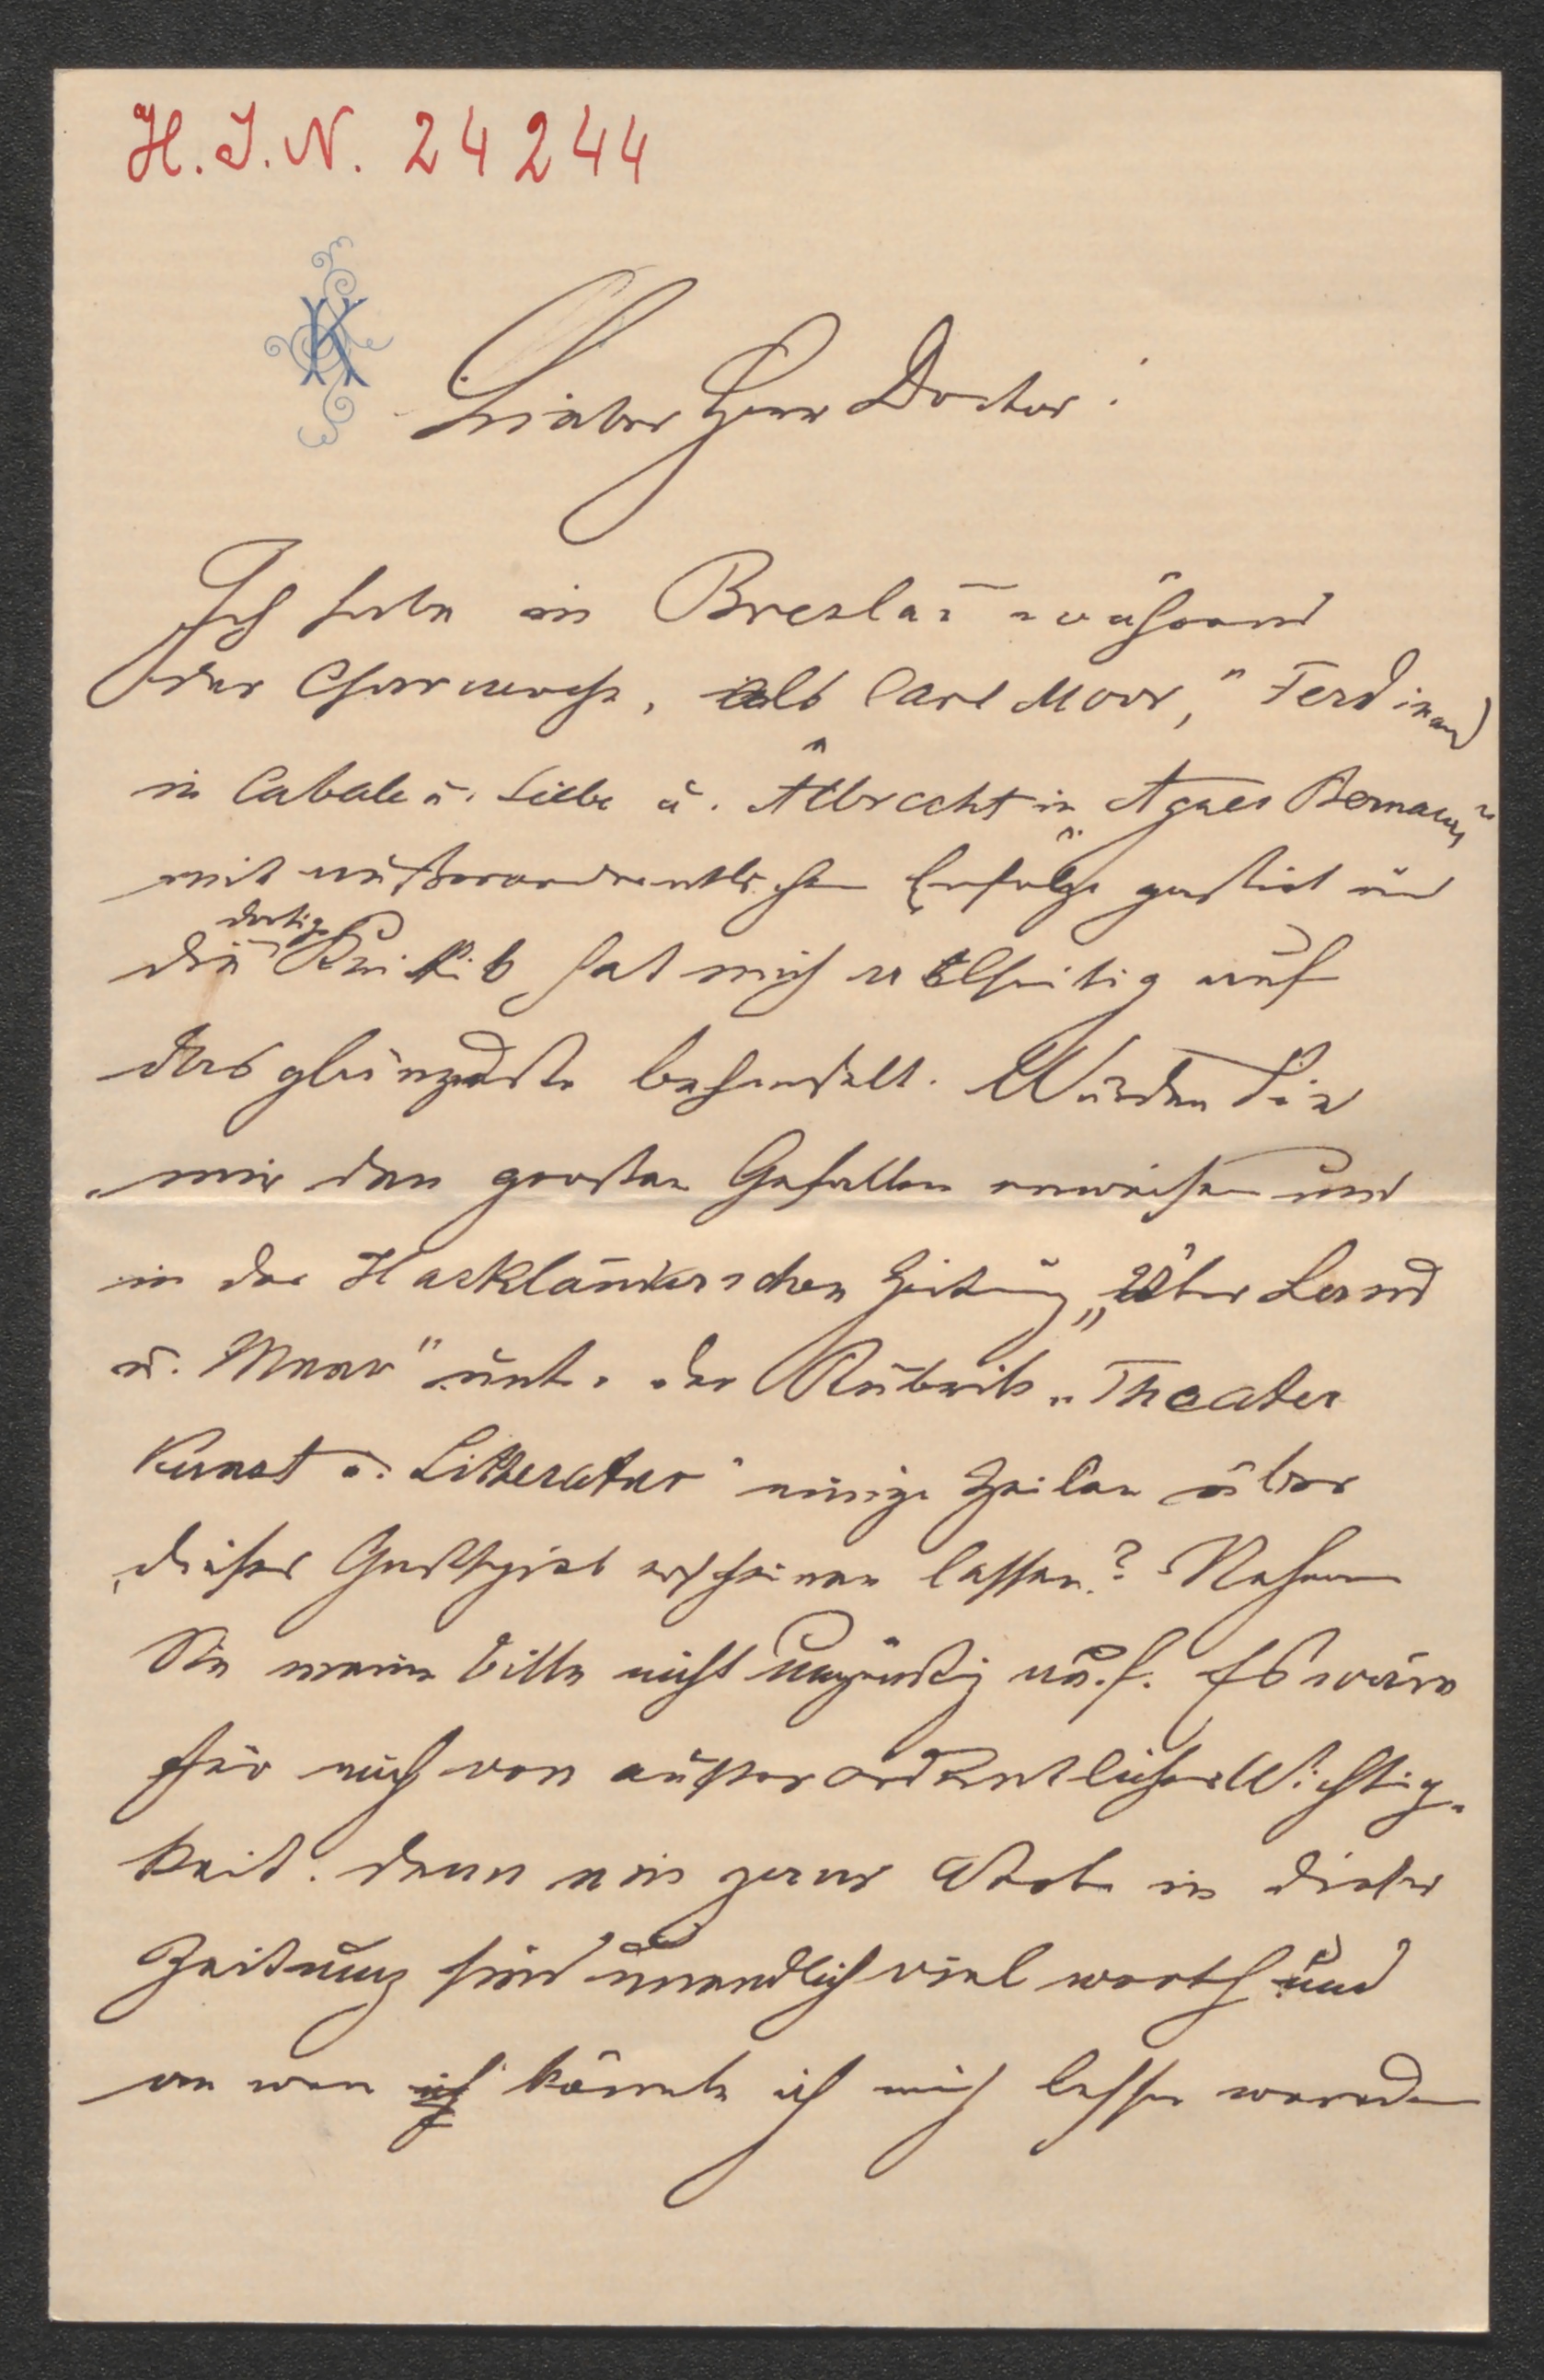 H. I. N. 24244
K
Lieber Herr Doctor!
Ich habe in Breslau während
der Charwoche, als Carl Moor," Ferdinand
in Cabale u. Liebe u. Albrecht in „Agnes Bernauer"
mit außerordentlichem Erfolge gastirt und
dortige
die Kritik hat mich allseitig auf
das glänzendste behandelt. Würden Sie
mir den großen Gefallen erweisen und
in der Hackländerschen Zeitung „Über Land
u. Meer" unter der Rubrik „Theater
Kunst u. Litteratur" einige Zeilen über
dieses Gastspiel erscheinen lassen? Nehmen
Sie meine Bitte nicht ungünstig auf. Es wäre
für mich von außerordentlicher Wichtig-
keit. denn ein paar Worte in dieser
Zeitung sind unendlich viel werth und
an wen ich könnte ich mich besser wenden